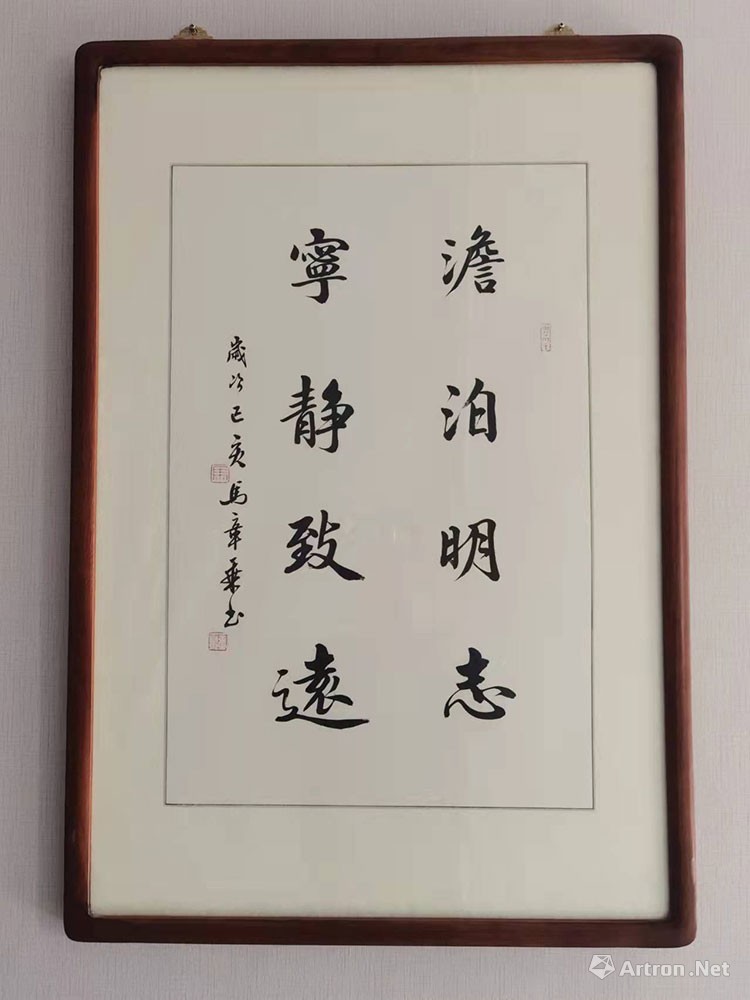 澹泊明志
寧靜致遠
歲次己亥馬章乘书
Artron.Net